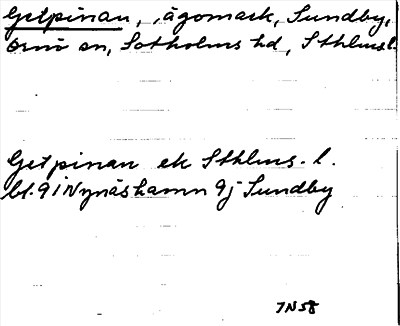 Getpinan, ägomark, Sundby,
Ornö sn, Sotholms hd, Sthlms l.
Getpinan ek Sthlms. l.
bl. 91 Nynäshamn 9j Sundby
JN58